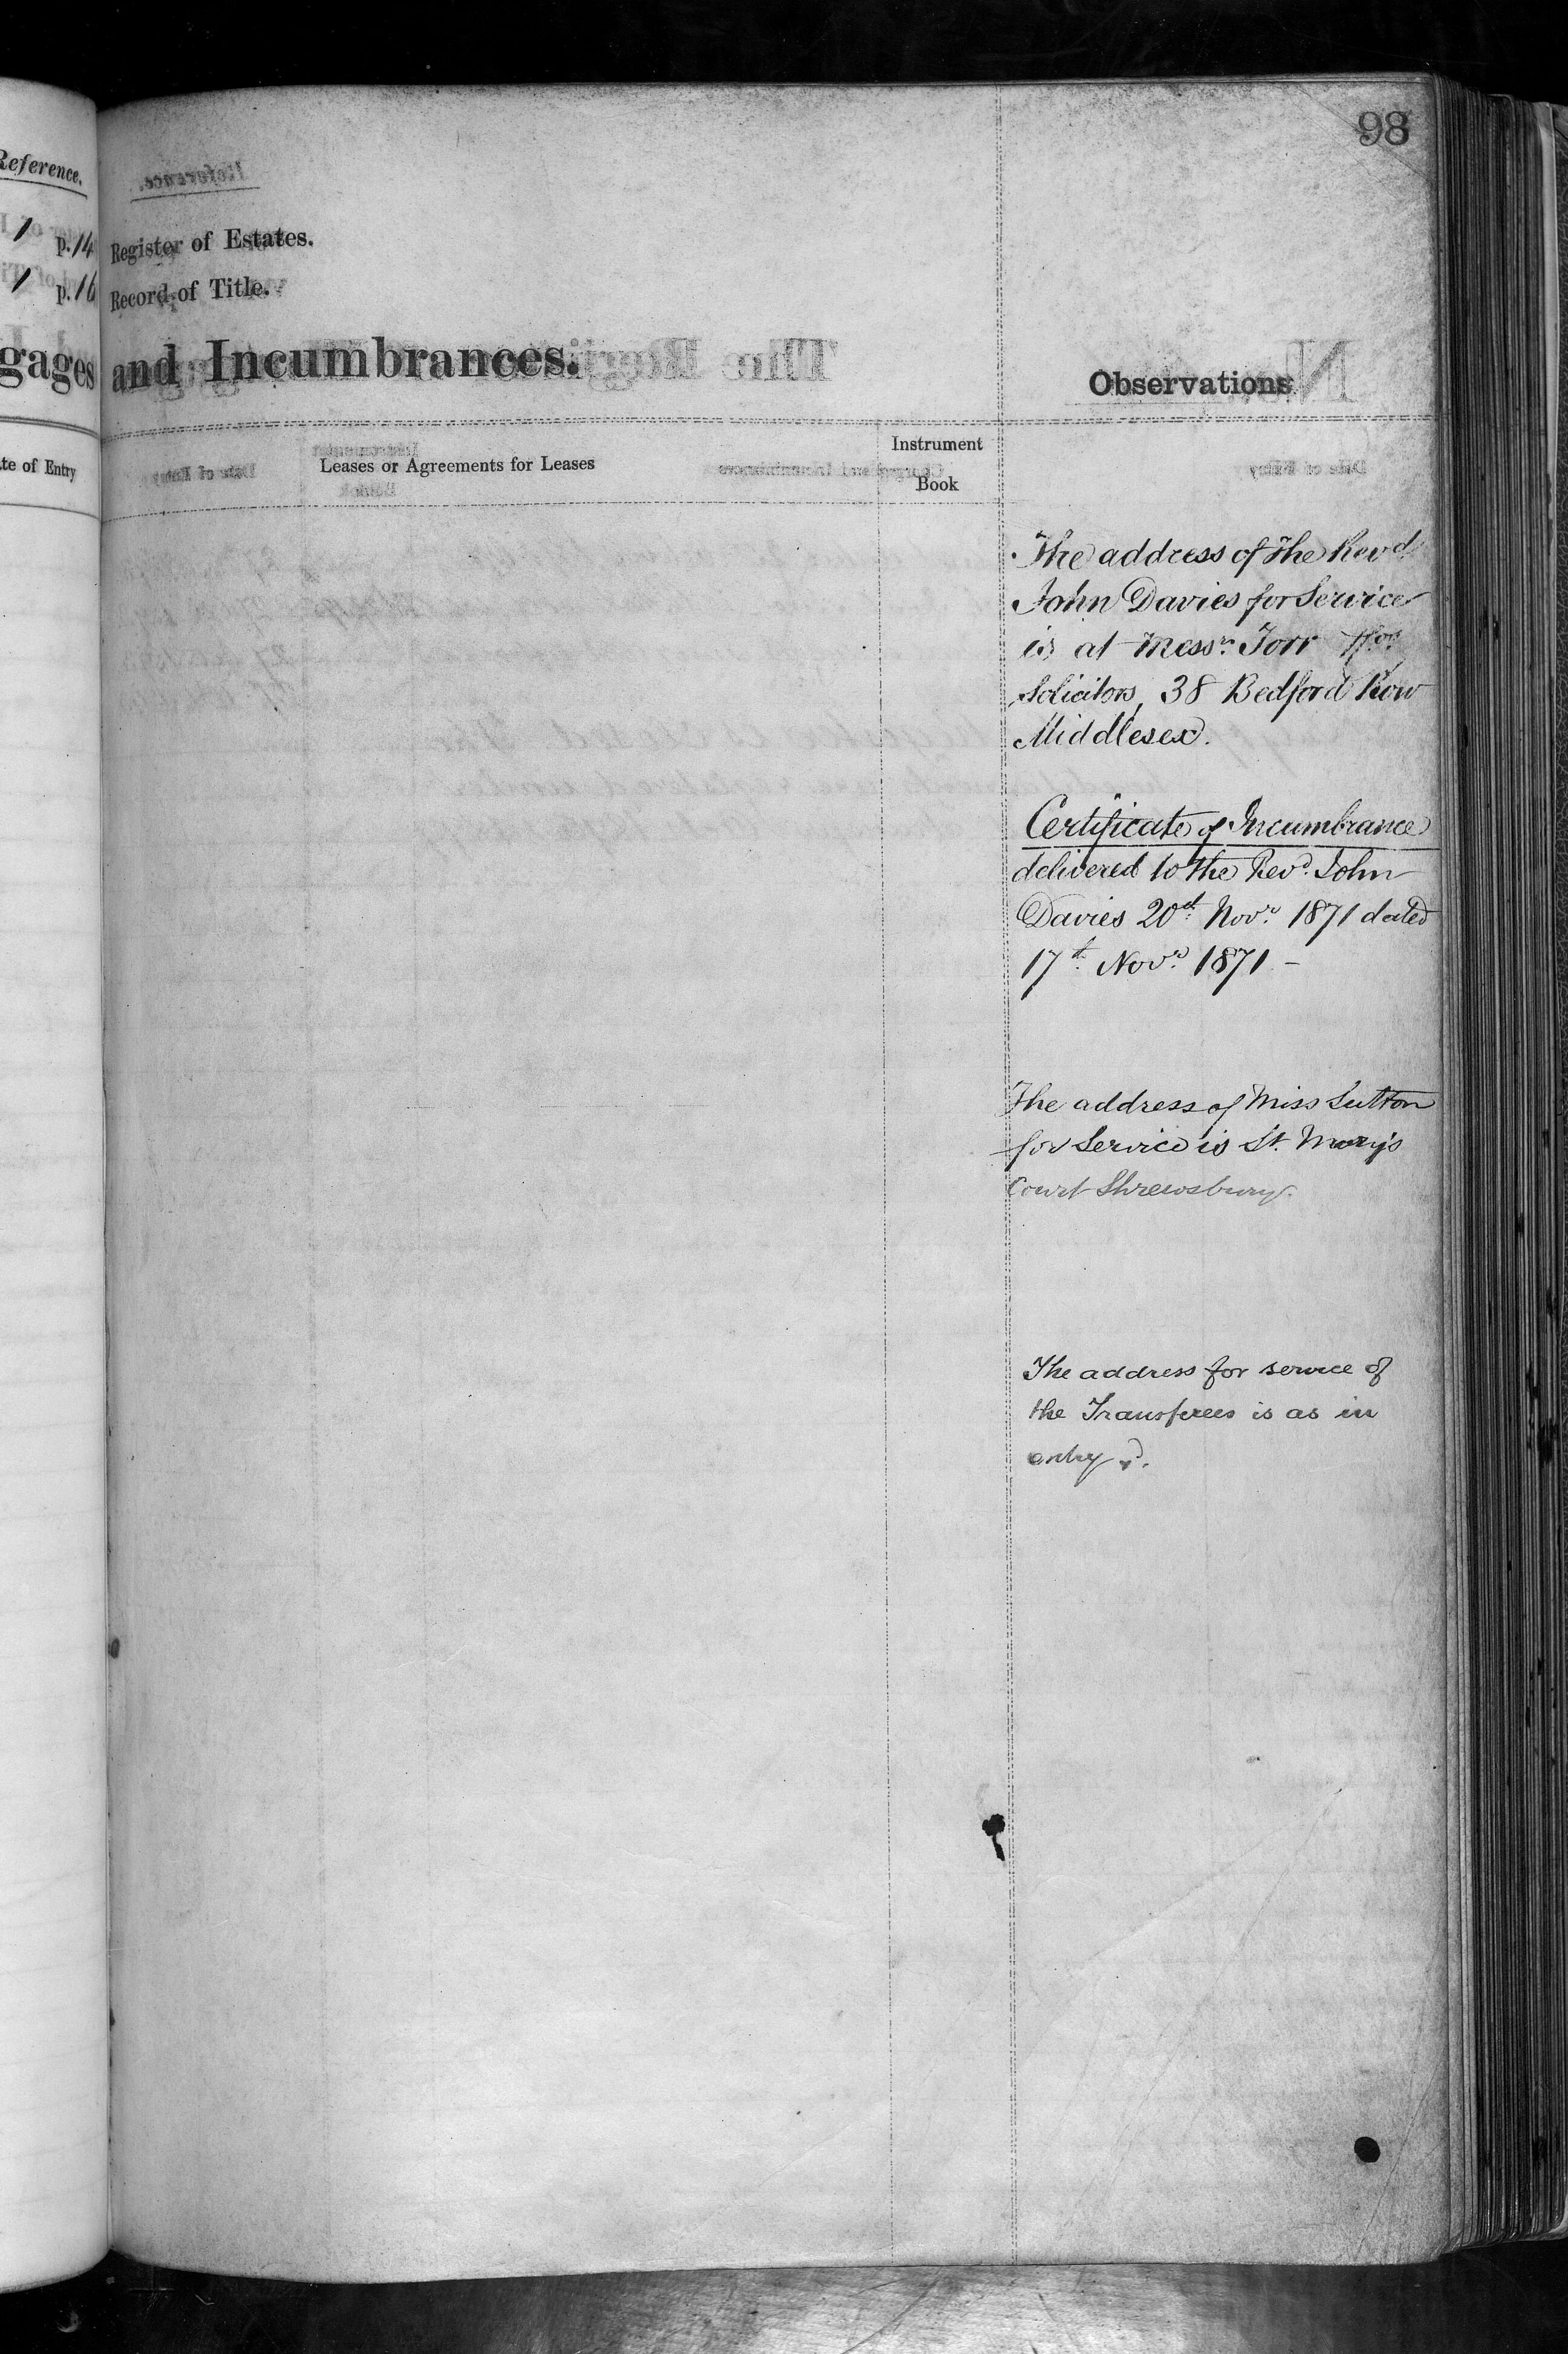 98
Reference.
1 p. 14
1 p. 16
Register of Estates.
Record of Title.
gages and Incumbrances.
Observations
te of Entry
Leases or Agreements for Leases
Instrument
Book
The address of the Revd
John Davies for Service
is at Messrs. Torr & Co.
Solicitors, 38 Bedford Row
Middlesex.
Certificate of Incumbrance
delivered to the Revd. John
Davies 20th Novr. 1871 dated
17th Novr. 1871 -
The address of Miss Sutton
for Service is St. Mary's
Court Shrewsbury.
The address for service of
the Transferees is as in
entry